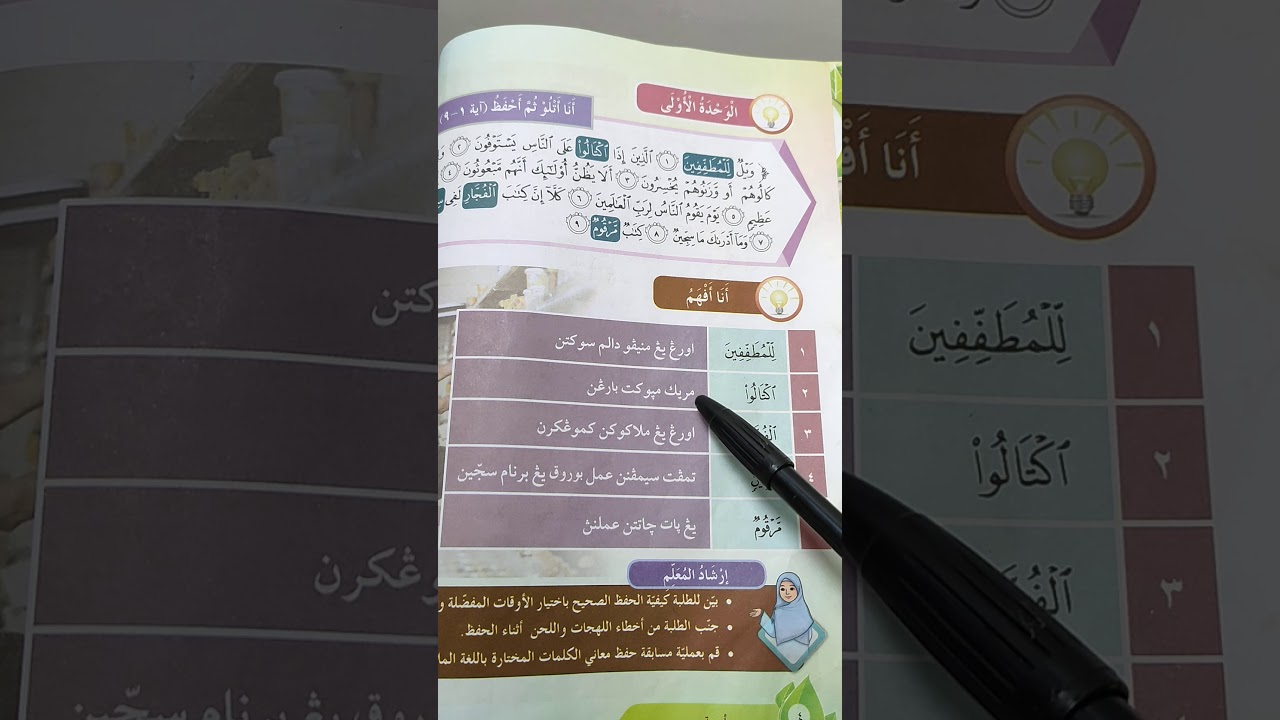 الْوَحْدَةُ الْأُوْلَى
أَنَا أَتْلُوْ ثُمَّ أَحْفَظُ (آية ١-٩)
وَيْلٌ لِّلْمُطَفِّفِينَ ١ ٱلَّذِينَ إِذَا ٱكْتَالُوا۟ عَلَى ٱلنَّاسِ يَسْتَوْفُونَ ٢
كَالُوهُمْ أَو وَّزَنُوهُمْ يُخْسِرُونَ ٣ أَلَا يَظُنُّ أُو۟لَـٰٓئِكَ أَنَّهُم مَّبْعُوثُونَ ٤
عَظِيمٍ ٥ يَوْمَ يَقُومُ ٱلنَّاسُ لِرَبِّ ٱلْعَـٰلَمِينَ ٦ كَلَّآ إِنَّ كِتَـٰبَ ٱلْفُجَّارِ لَفِى
٧ وَمَآ أَدْرَىٰكَ مَا سِجِّينٌ ٨ كِتَـٰبٌ مَّرْقُومٌ ٩
أَنَا أَفْهَمُ
١ لِّلْمُطَفِّفِينَ اورڠ يڠ منيڤو دالم سوكتن
٢ ٱكْتَالُوا۟ مريك مڽوكت بارڠن
٣ اورڠ يڠ ملاكوكن كموڠكرن
٤ تمڤت سيمڤنن عمل بوروق يڠ برنام سجّين
مَّرْقُومٌ يڠ ڤات چاتتن عملنڽ
إرْشَادُ المُعَلِّمِ
• بيّن للطلبة كيفيّة الحفظ الصحيح باختيار الأوقات المفضّلة و
• جنّب الطلبة من أخطاء اللهجات واللحن أثناء الحفظ.
• قم بعمليّة مسابقة حفظ معاني الكلمات المختارة باللغة